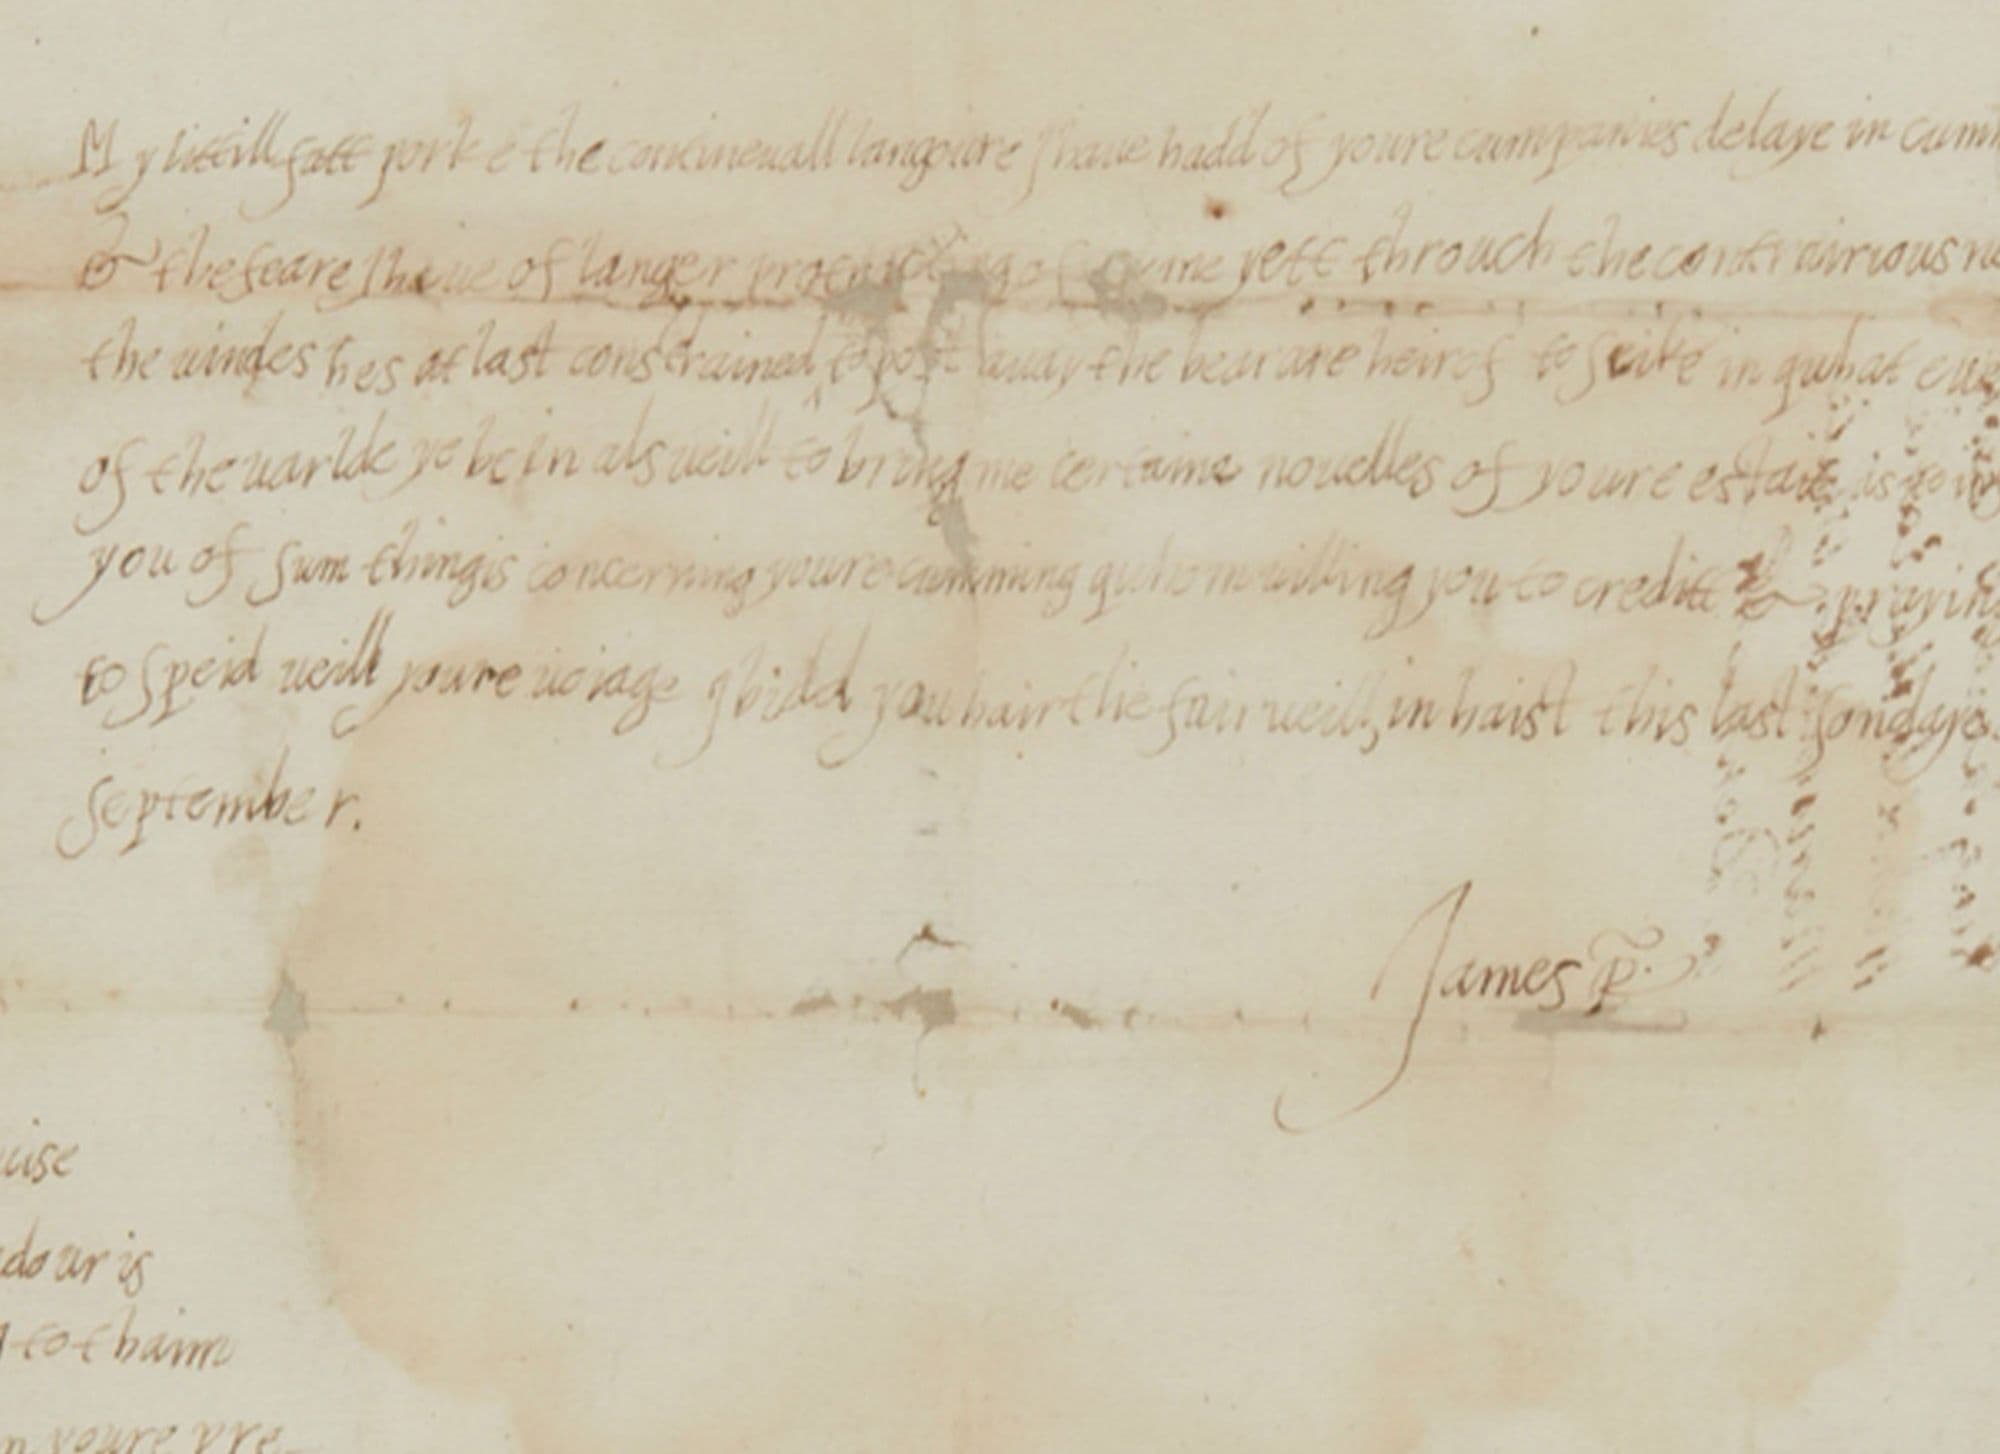 My littill fatt pork e the continewall langoure I haue hadd of youre cumpanies delaye in
& the feare I haue of langer protracting of tyme yett throuch the contrairious
the windes hes at last constrained to post auay the bearare heirof to seike in quhat
of the uarlde ye be in als ueill to bring me certaine nouelles of youre estait is to
you of sum thingis concerning youre cumming quhom uilling you to creditt &
to speid ueill youre uoiage I bidd you hairtlie fairueill, in haist this last sondaye
september.
James
dour is
to thaim
youre pre-